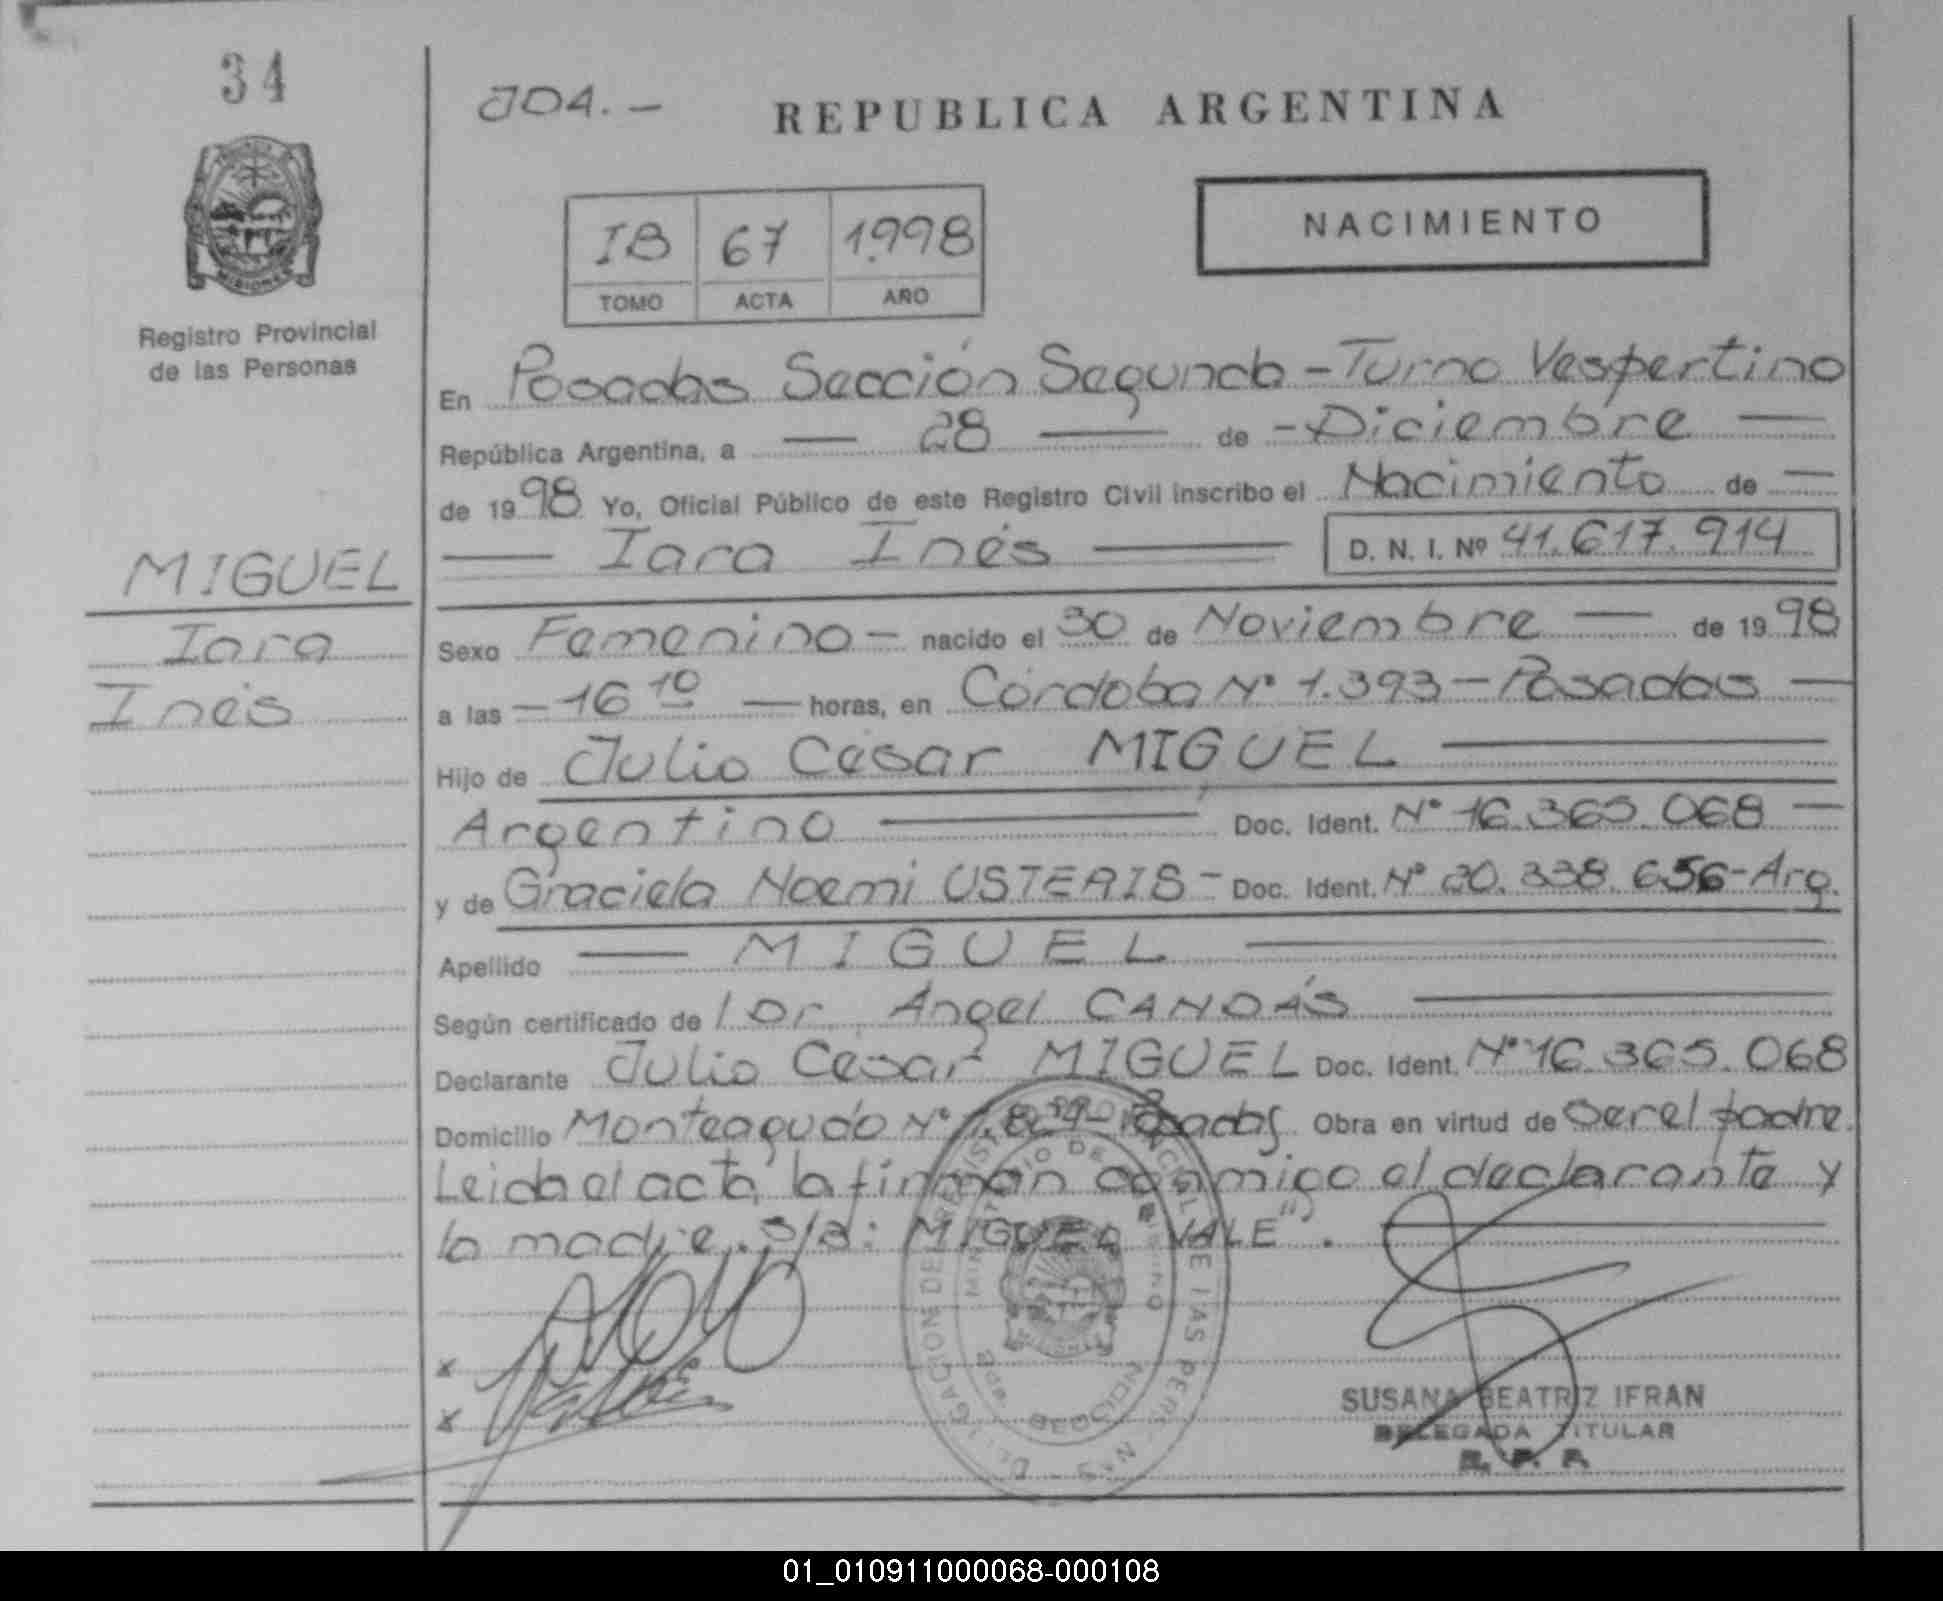 34
J04.-
REPUBLICA ARGENTINA
IB 67 1.998
TOMO ACTA AÑO
NACIMIENTO
MISIONES
Registro Provincial
de las Personas
En Posadas Sección Segunda - Turno Vespertino
República Argentina, a — 28 — de - Diciembre —
de 1998 Yo, Oficial Público de este Registro Civil inscribo el Nacimiento de —
— Iara Inés — D. N. I. Nº 41.617.914
MIGUEL
Iara
Inés
Sexo Femenino - nacido el 30 de Noviembre — de 1998
a las - 16 10 — horas, en Córdoba Nº 1.393 - Posadas —
Hijo de Julio César MIGUEL —
Argentino — Doc. Ident. Nº 16.365.068 —
y de Graciela Noemi USTERIS - Doc. Ident. Nº 20.338.656 - Arg.
Apellido — MIGUEL —
Según certificado de / Dr. Ángel CANDÁS —
Declarante Julio César MIGUEL Doc. Ident. Nº 16.365.068
Domicilio Monteagudo Nº Posadas Obra en virtud de Ser el padre.
Leida el acta, la firman conmigo el declarante y
la madre. S/B: "MIGUEL VALE".
SUSANA BEATRIZ IFRAN
DELEGADA TITULAR
R. P. P.
01_010911000068-000108